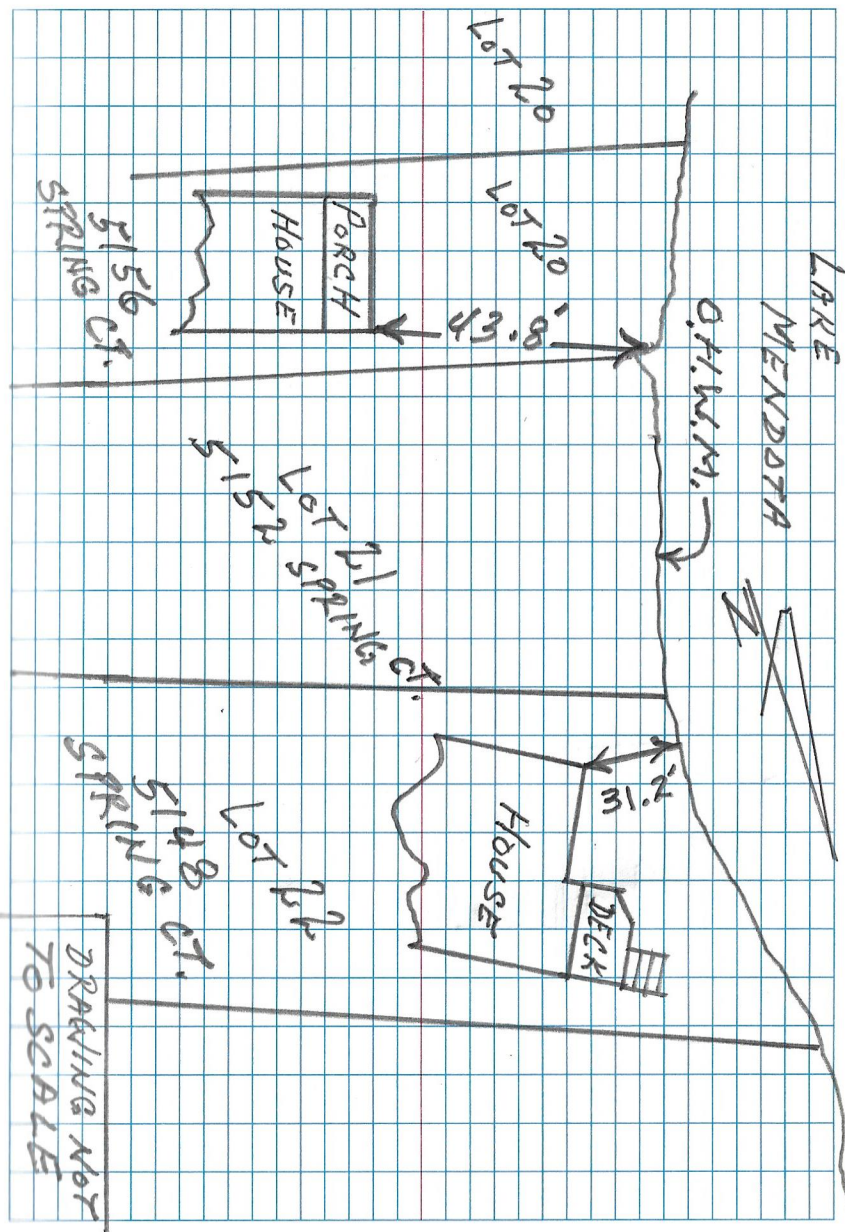 LAKE
MENDOTA
O.H.W.M.
LOT 20
LOT 20
43.8'
PORCH
HOUSE
5156
SPRING CT.
LOT 21
5152 SPRING CT.
N
31.2'
HOUSE
DECK
LOT 22
5148
SPRING CT.
DRAWING NOT
TO SCALE